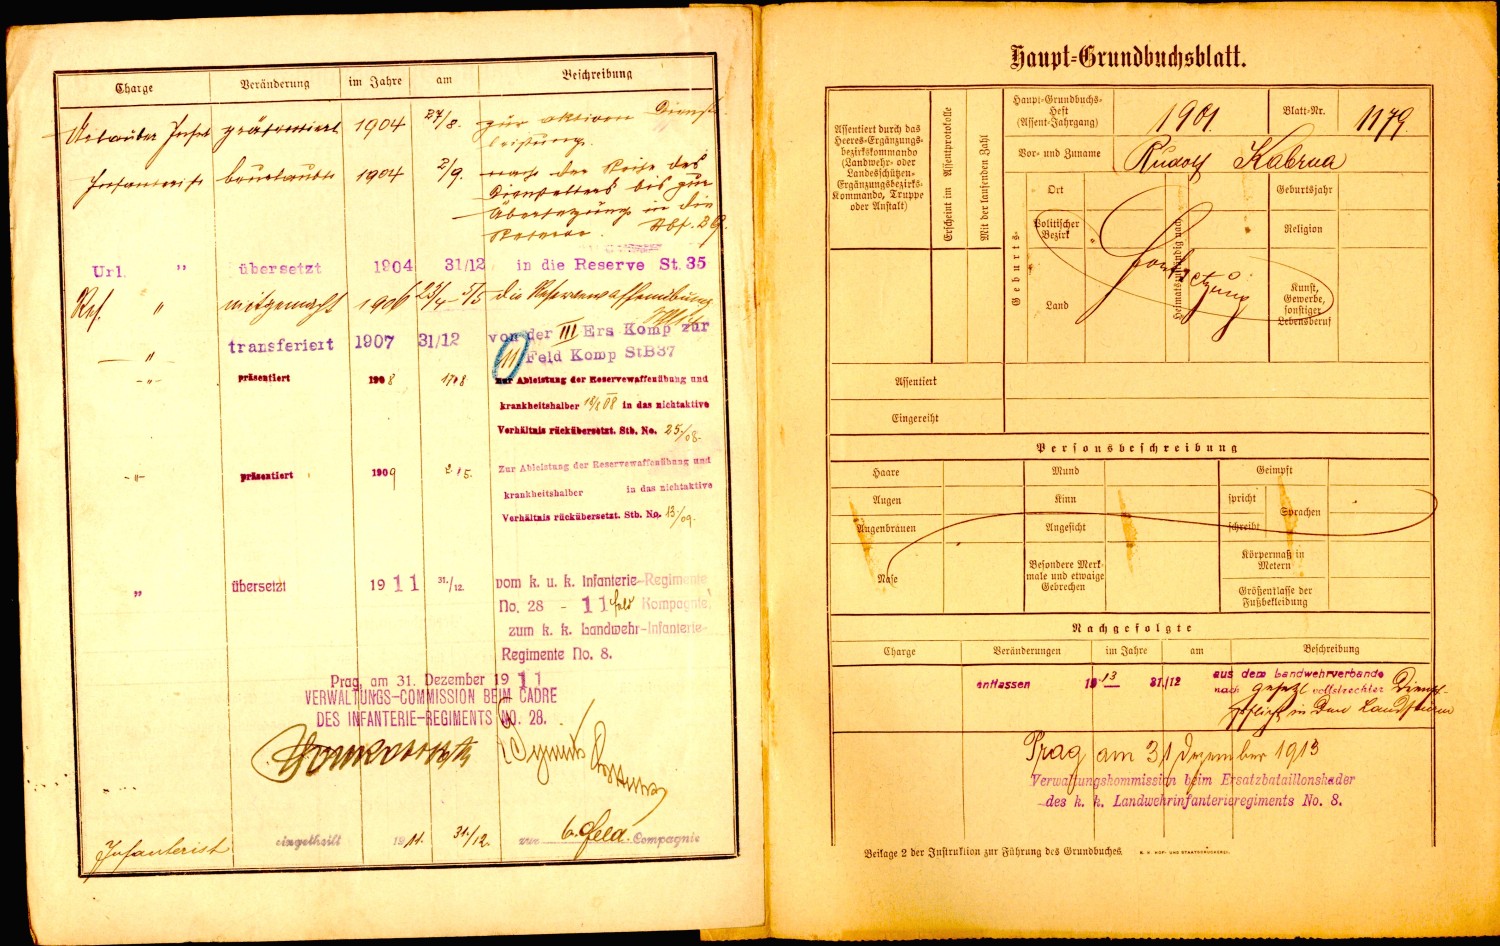 Charge Veränderung im Jahre am Beschreibung
Urlauber Infst präsentiert 1904 27/8. zur aktiven Dienst-
leistung.
Infanterist beurlaubt 1904 2/9. nach der Reihe des
Dienstalters bis zur
Übersetzung in die
Reserve. Abf. 269.
Url. " übersetzt 1904 31/12 in die Reserve St. 35
Res. " mitgemacht 1906 23/4-5/5 die Reservewaffenübung
" transferiert 1907 31/12 von der III Ers Komp zur
11 Feld Komp StB37
-"- präsentiert 1908 17 8 zur Ableistung der Reservewaffenübung und
krankheitshalber 18/8 08 in das nichtaktive
Verhältnis rückübersetzt. Stb. No. 25./08.
-"- präsentiert 1909 2 5. Zur Ableistung der Reservewaffenübung und
krankheitshalber in das nichtaktive
Verhältnis rückübersetzt. Stb. No. 13./09.
" übersetzt 1911 31./12. vom k. u. k. Infanterie-Regimente
No. 28 - 11 Feld Kompagnie,
zum k. k. Landwehr-Infanterie-
Regimente No. 8.
Prag, am 31. Dezember 1911
VERWALTUNGS-COMMISSION BEIM CADRE
DES INFANTERIE-REGIMENTS NO. 28.
Infanterist eingetheilt 1911. 31./12. zur 6. Feld. Compagnie
Haupt-Grundbuchsblatt.
Assentiert durch das
Heeres-Ergänzungs-
bezirkskommando
(Landwehr- oder
Landesschützen-
Ergänzungsbezirks-
Kommando, Truppe
oder Anstalt)
Erscheint im Assentprotokolle
Mit der laufenden Zahl
Haupt-Grundbuchs-
Heft
(Assent-Jahrgang)
1901. Blatt-Nr. 1179.
Vor- und Zuname Rudolf Kabrna
Geburts-
Ort
Politischer
Bezirk
Land
Heimatszuständig nach
Geburtsjahr
Religion
Kunst,
Gewerbe,
sonstiger
Lebensberuf
Fortsetzung
Assentiert
Eingereiht
Personsbeschreibung
Haare Mund Geimpft
Augen Kinn spricht Sprachen
Augenbrauen Angesicht schreibt
Nase Besondere Merk-
male und etwaige
Gebrechen
Körpermaß in
Metern
Größenklasse der
Fußbekleidung
Nachgefolgte
Charge Veränderungen im Jahre am Beschreibung
entlassen 1913 31./12 aus dem Landwehrverbande
nach gesetzl vollstreckter Dienst-
pflicht in den Landsturm
Prag am 31 Dezember 1913
Verwaltungskommission beim Ersatzbataillonskader
des k. k. Landwehrinfanterieregiments No. 8.
Beilage 2 der Instruktion zur Führung des Grundbuches. K. K. HOF- UND STAATSDRUCKEREI.